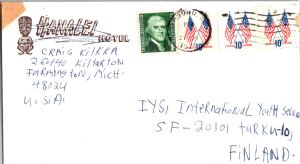 HANALEI
HOTEL
CRAIG KILKKA
26140 KILTARTON
FARMINGTON, MICH.
48024
U.S.A.
10 10 10
IYSI International Youth Service
SF-20101 TURKU-10,
FINLAND.